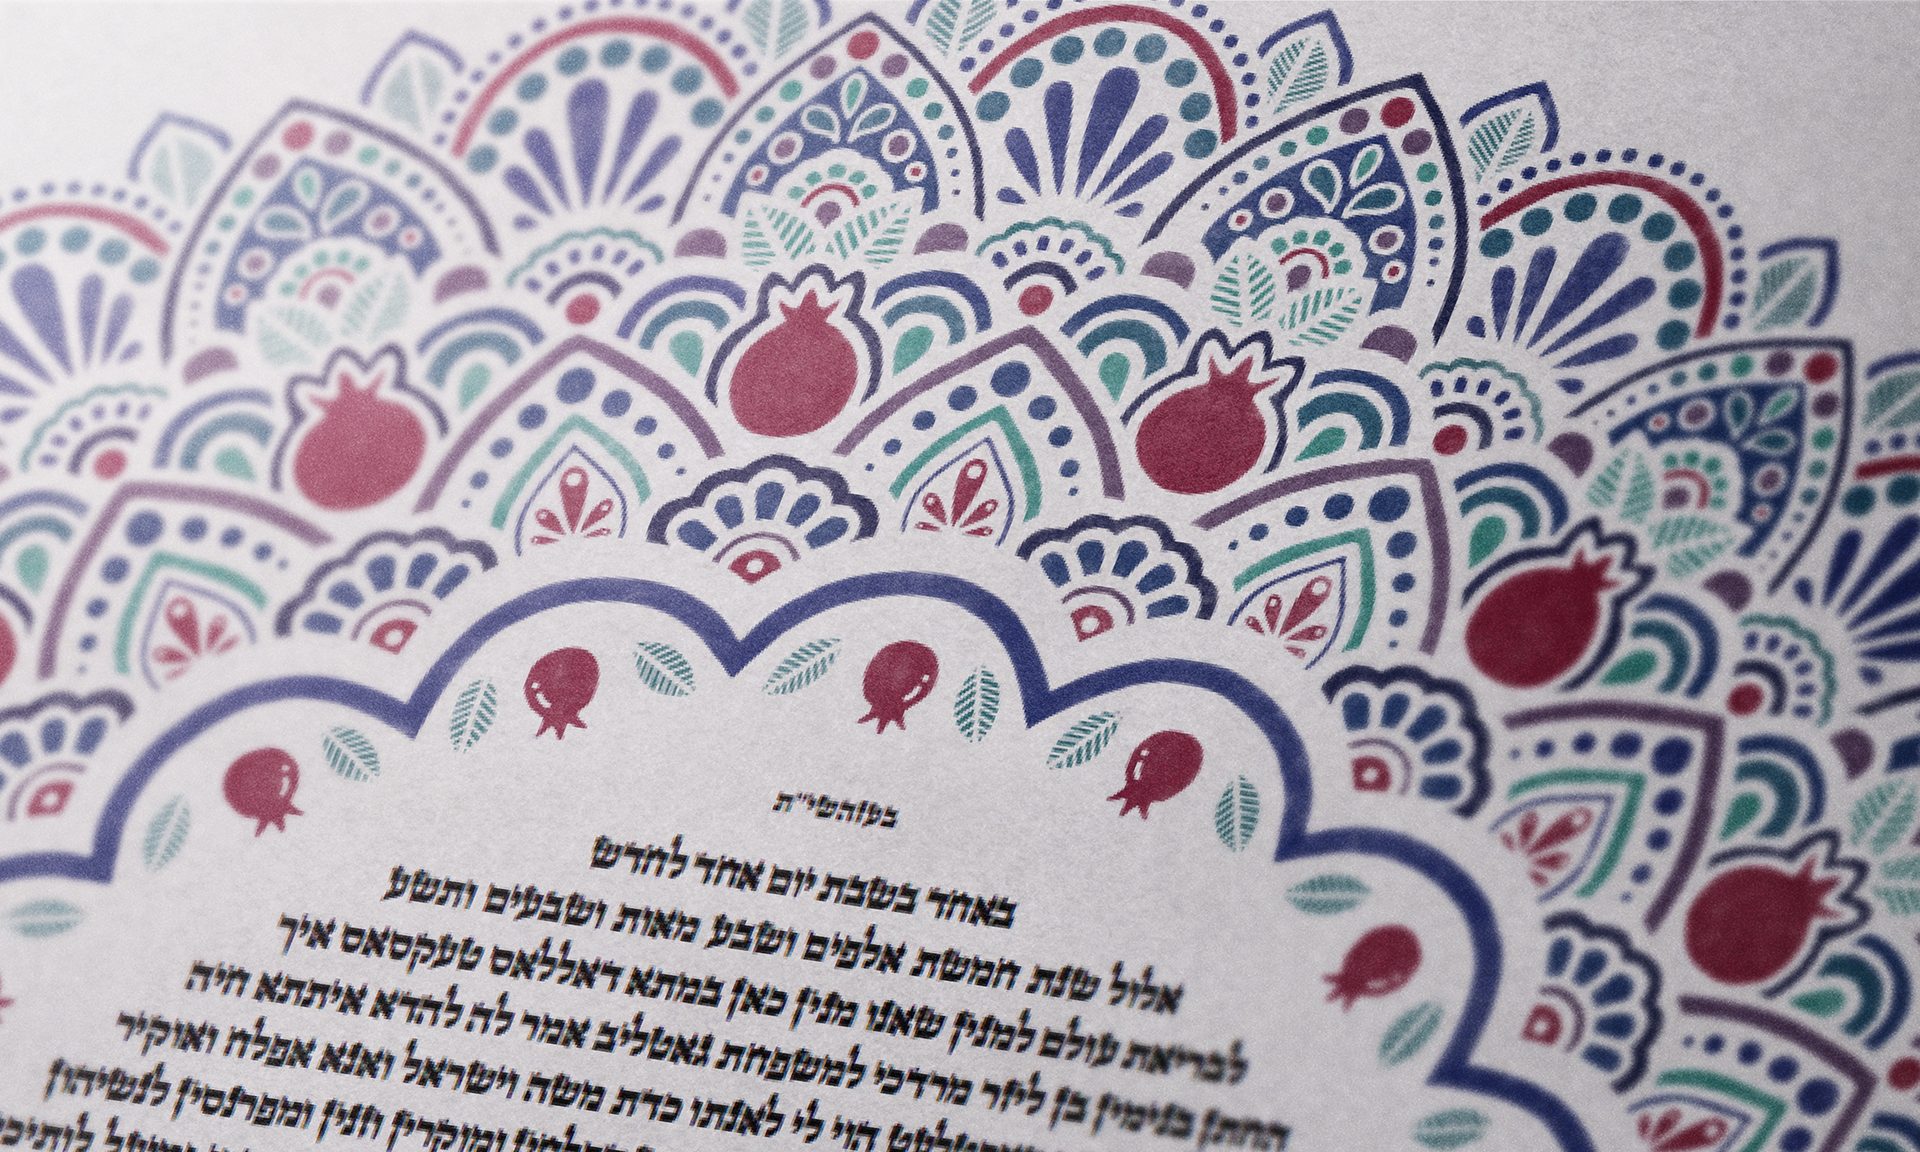 בעזהשי״ת
באחד בשבת יום אחד לחדש
אלול שנת חמשת אלפים ושבע מאות ושבעים ותשע
לבריאת עולם למנין שאנו מנין כאן במתא דאללאס טעקסאס איך
החתן בנימין בן ליזר מרדכי למשפחת גאטליב אמר לה להדא איתתא חיה
הוי לי לאנתו כדת משה וישראל ואנא אפלח ואוקיר
ומוקרין וזנין ומפרנסין לנשיהון